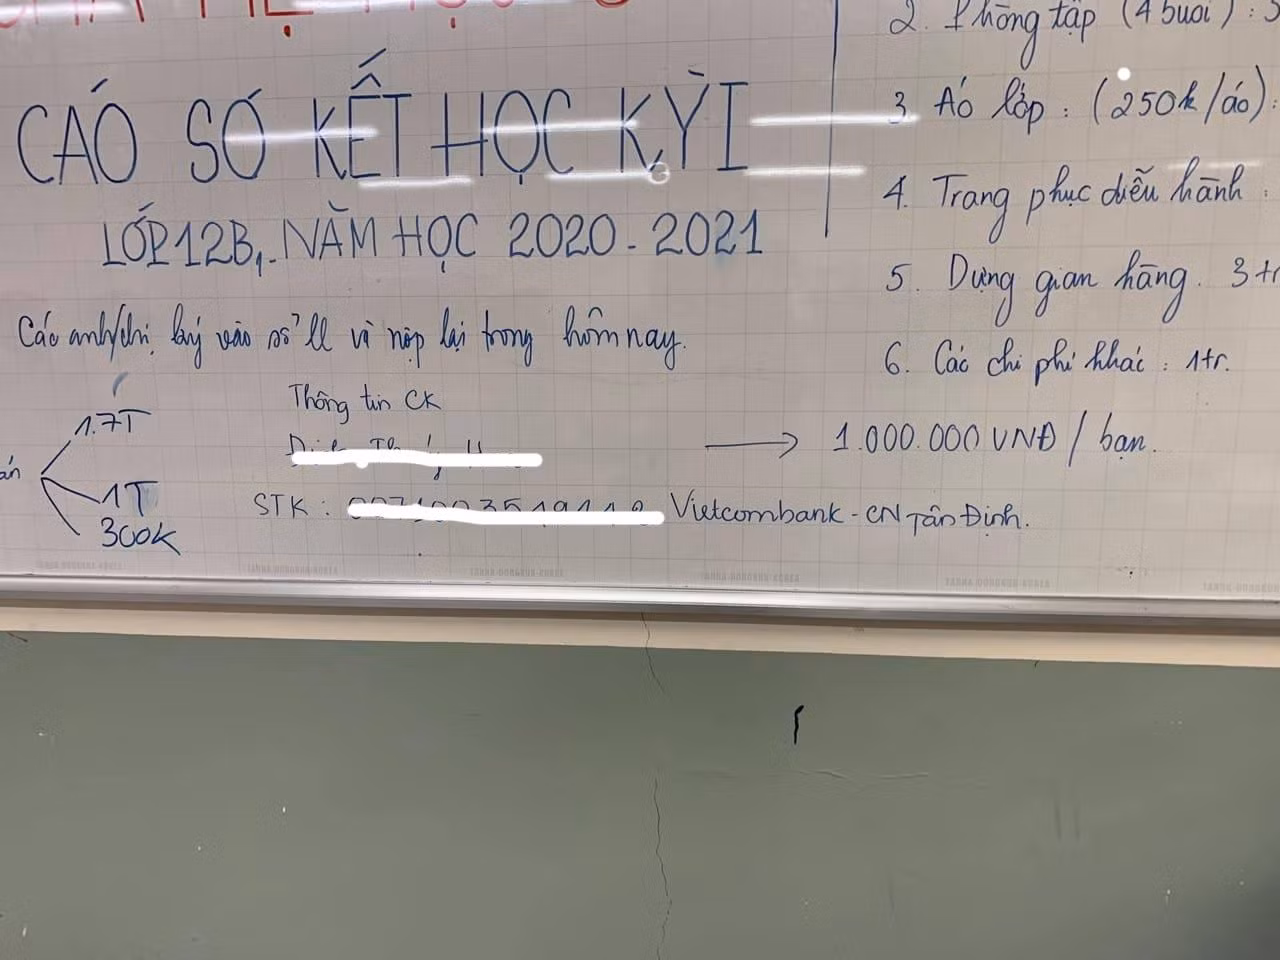 CÁO SƠ KẾT HỌC KỲ I
LỚP 12B1. NĂM HỌC 2020 - 2021
Các anh/chị ký vào sổ LL và nộp lại trong hôm nay.
1.7T
1T
300K
Thông tin CK
STK :
Vietcombank - CN Tân Định.
2. Phòng tập (4 buổi) :
3. Áo lớp : (250k/áo) :
4. Trang phục diễu hành :
5. Dựng gian hàng. 3tr
6. Các chi phí khác : 1tr.
→ 1.000.000 VNĐ / bạn.